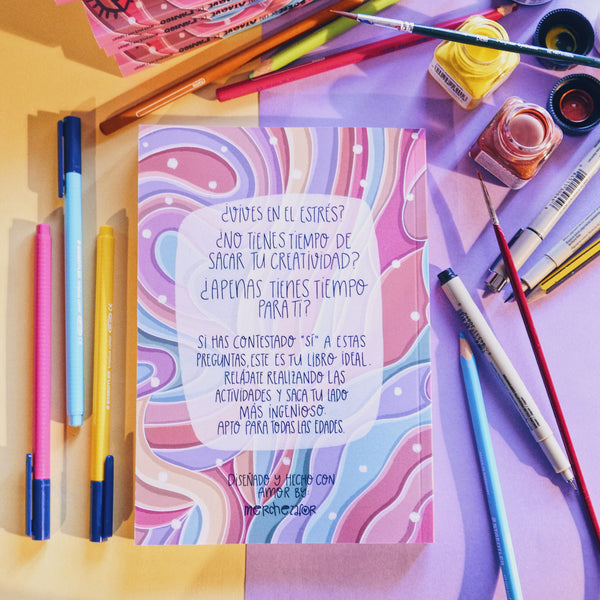 ¿VIVES EN EL ESTRÉS?
¿NO TIENES TIEMPO DE
SACAR TU CREATIVIDAD?
¿APENAS TIENES TIEMPO
PARA TI?
SI HAS CONTESTADO "SÍ" A ESTAS
PREGUNTAS, ESTE ES TU LIBRO IDEAL.
RELÁJATE REALIZANDO LAS
ACTIVIDADES Y SACA TU LADO
MÁS INGENIOSO.
APTO PARA TODAS LAS EDADES.
DISEÑADO Y HECHO CON
AMOR BY: